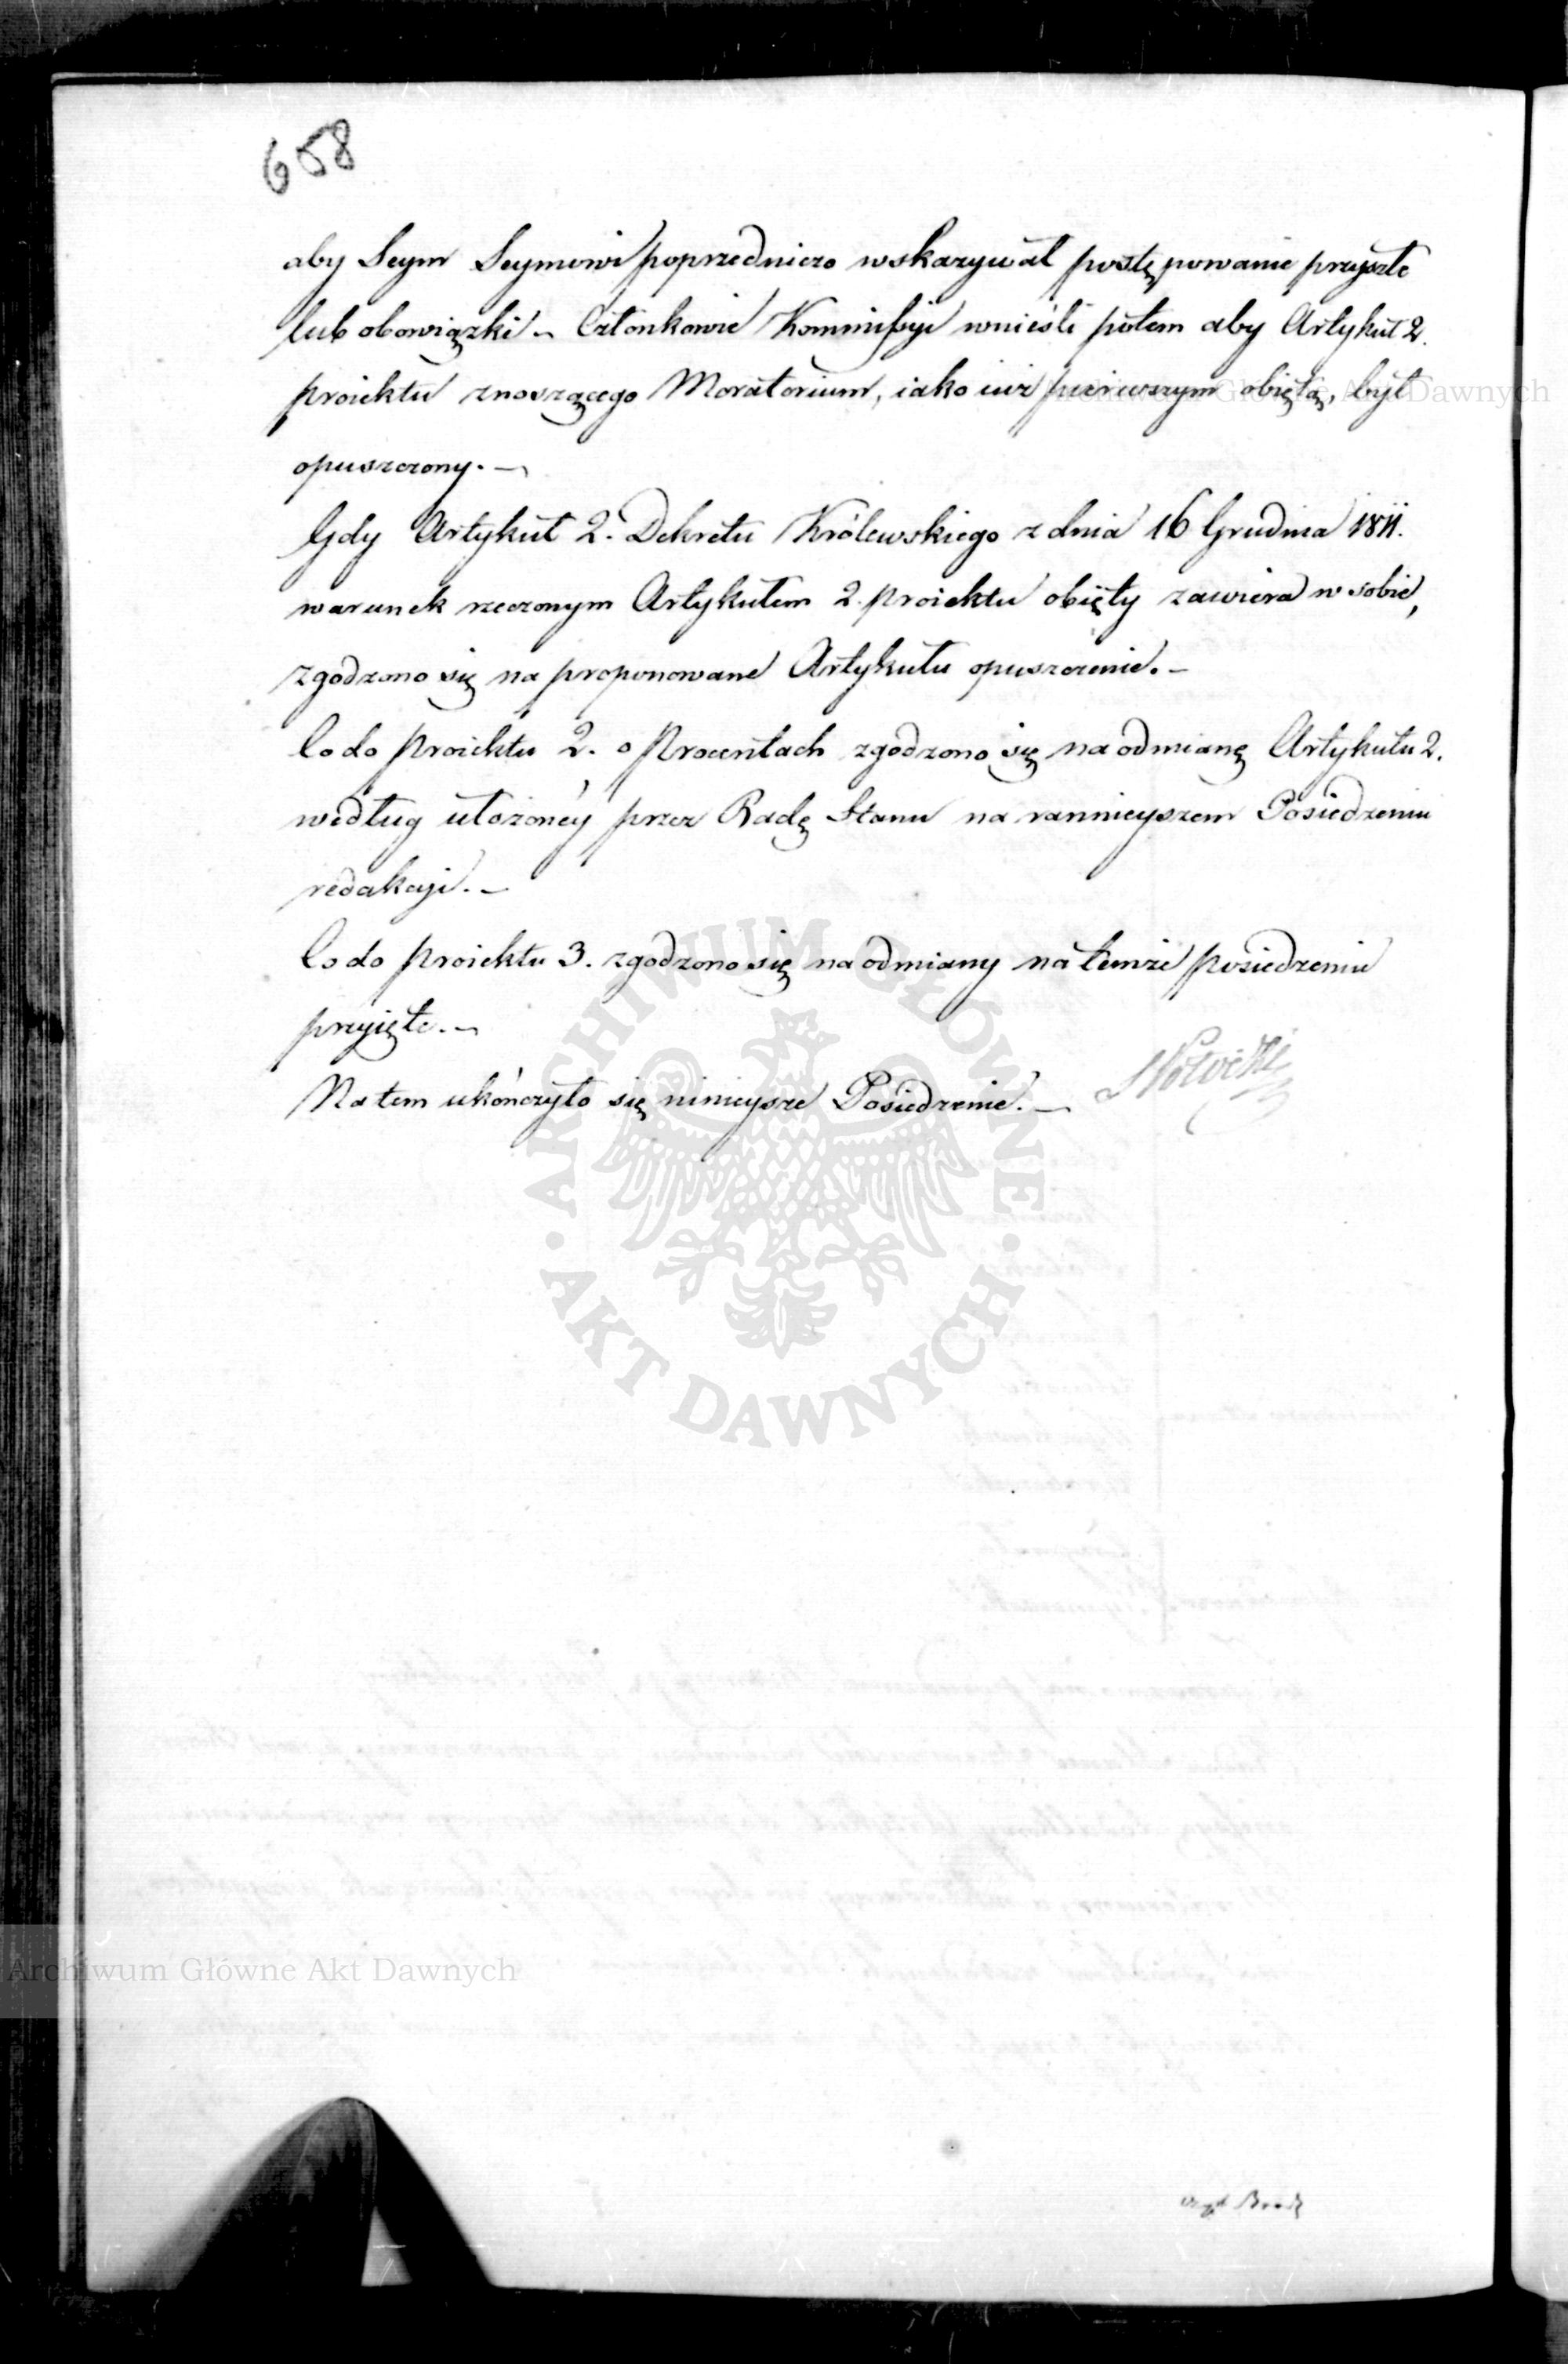 658
aby Seym Seymowi poprzedniczo wskazywał postępowanie przyszłe
lub obowiązki. — Członkowie Kommissyi wnieśli potem aby Artykuł 2.
proiektu znoszącego Moratorium, iako iuż pierwszym obiętą, był
opuszczony. —
Gdy Artykuł 2. Dekretu Królewskiego z dnia 16 Grudnia 1811.
warunek rzeczonym Artykułem 2. proiektu obięty zawiera w sobie,
zgodzono się na proponowane Artykułu opuszczenie. —
Co do proiektu 2. o Procentach zgodzono się na odmianę Artykułu 2.
według ułożoney przez Radę Stanu na rannieyszem Posiedzeniu
redakcyi. —
Co do proiektu 3. zgodzono się na odmiany na temże posiedzeniu
przyięte. —
Na tem ukończyło się ninieysze Posiedzenie. —
ARCHIWUM GŁÓWNE
AKT DAWNYCH
Archiwum Główne Akt Dawnych
Archiwum Główne Akt Dawnych